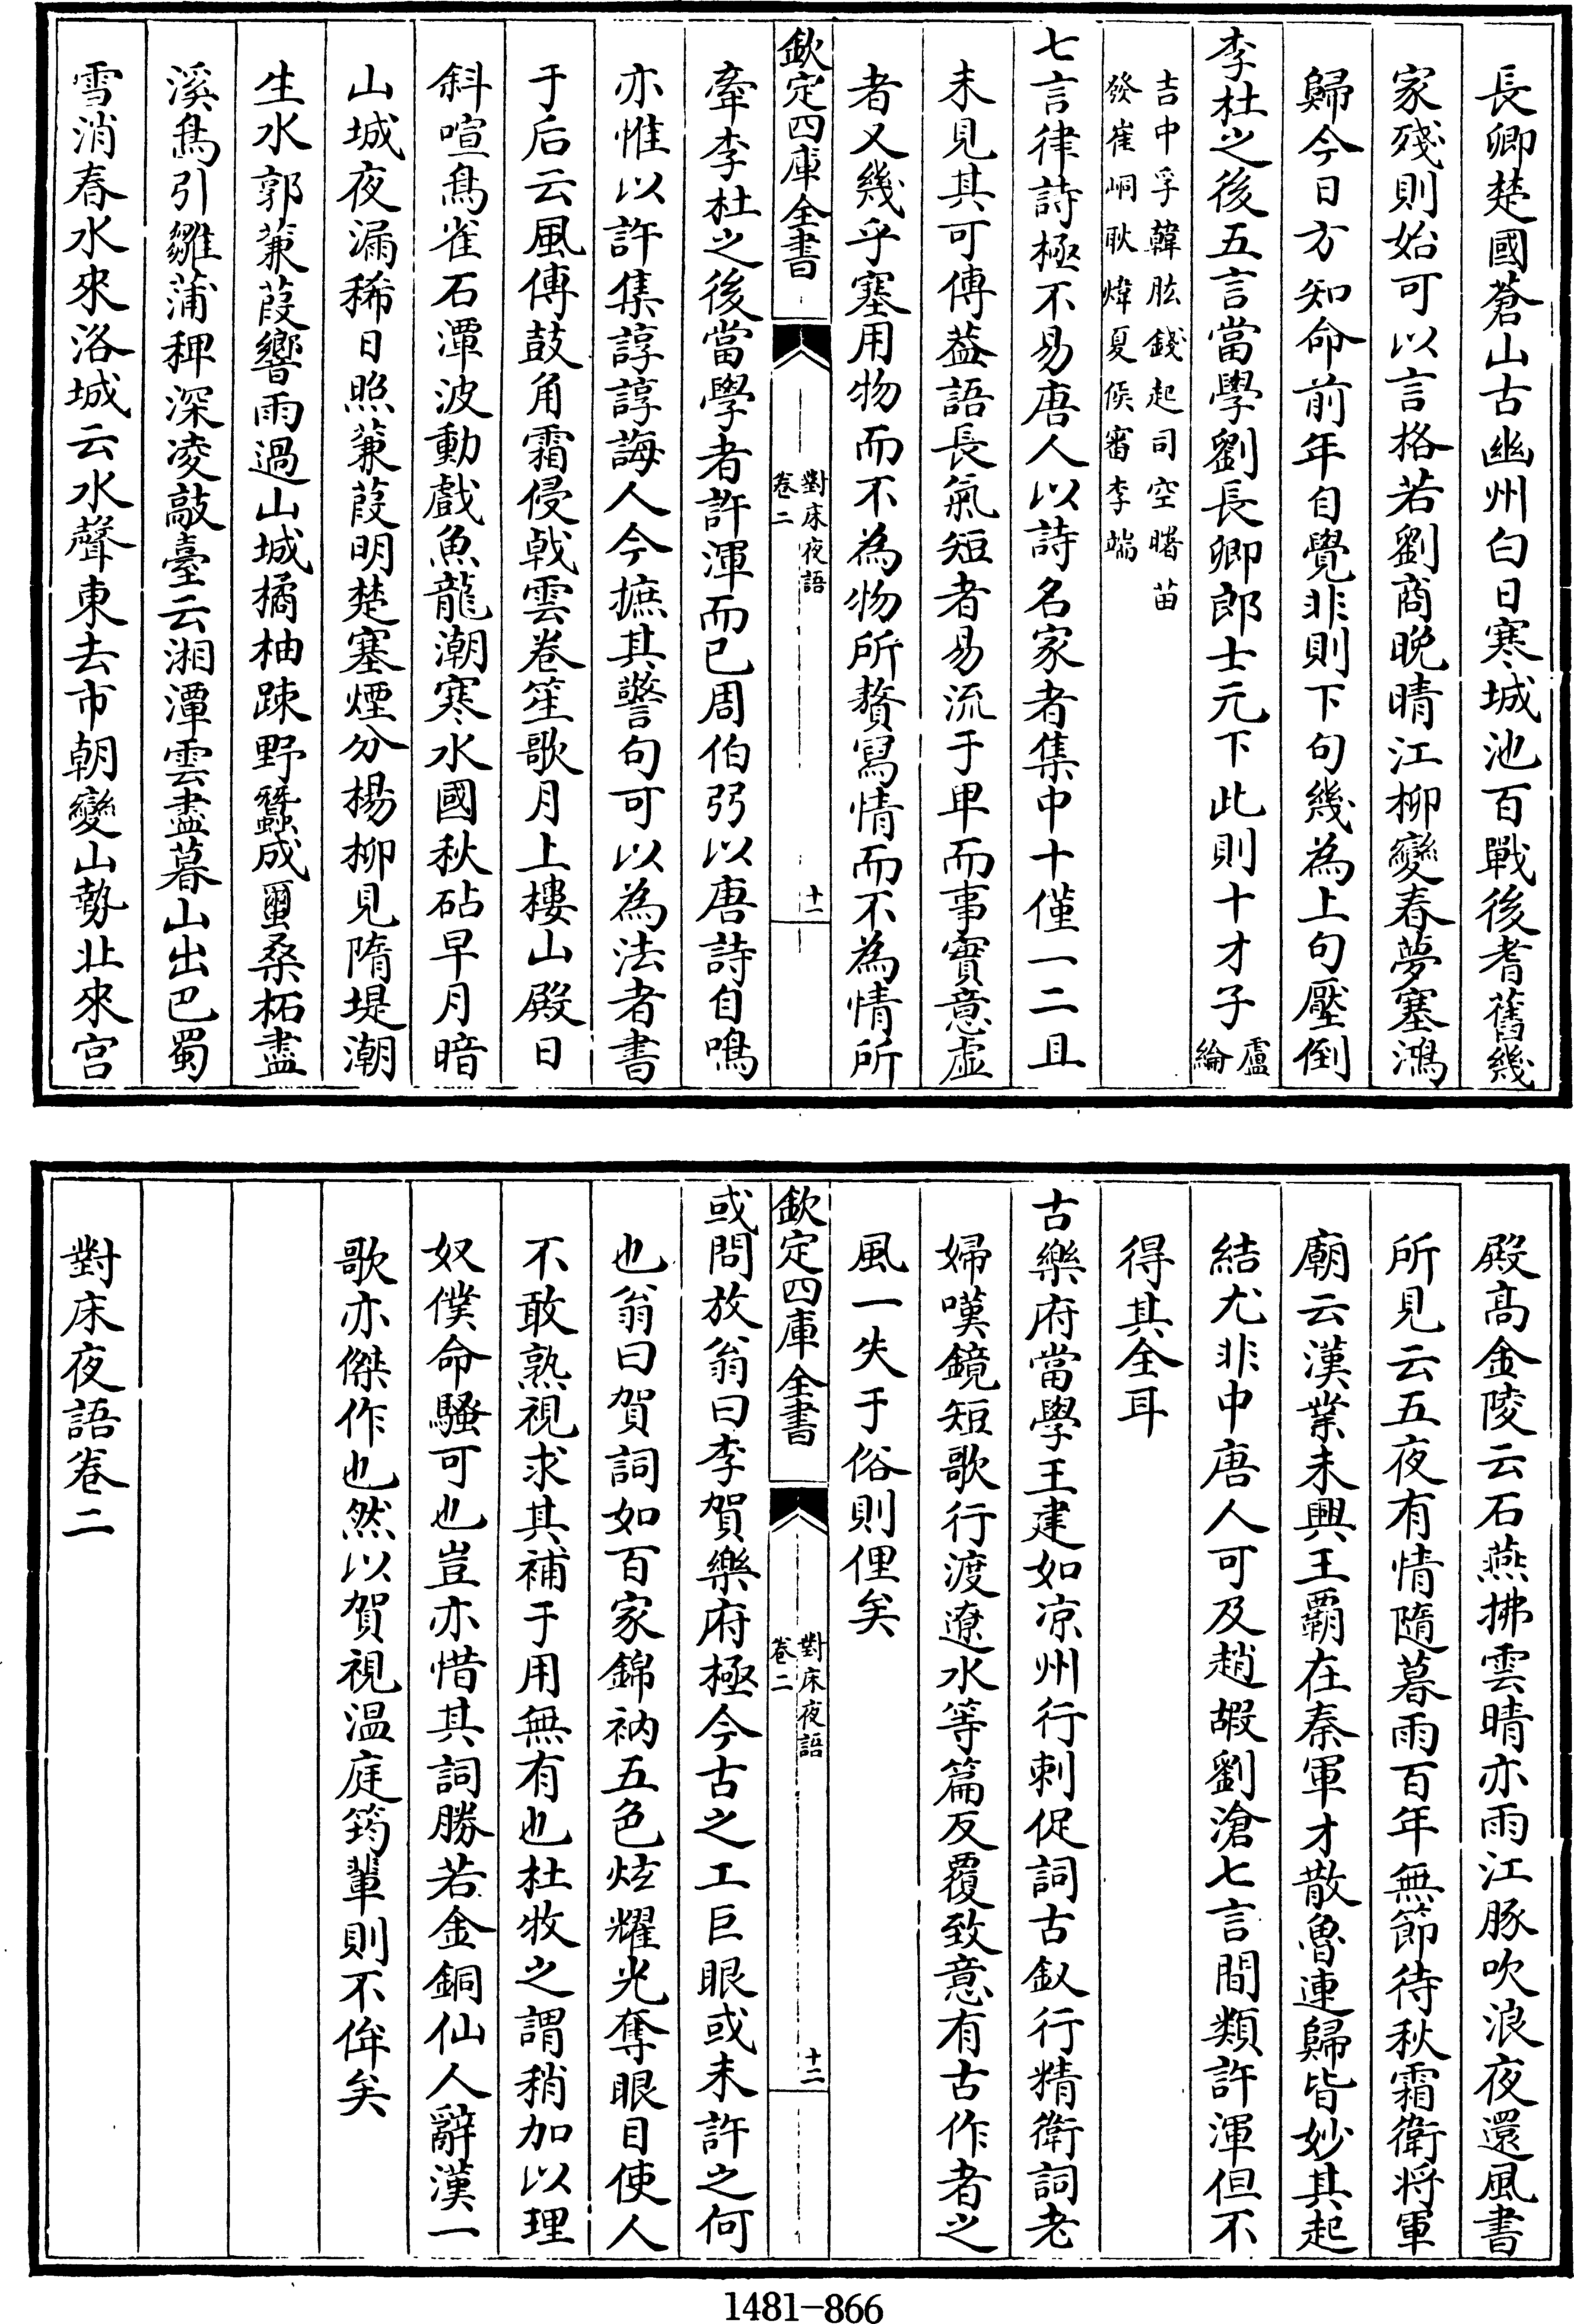 長卿楚國蒼山古幽州白日寒城池百戰後耆舊幾
家殘則始可以言格若劉商晚晴江柳變春夢塞鴻
歸今日方知命前年自覺非則下句幾為上句壓倒
李杜之後五言當學劉長卿郎士元下此則十才子盧綸
吉中孚韓肱錢起司空曙苗
發崔峒耿煒夏侯審李端
七言律詩極不易唐人以詩名家者集中十僅一二且
未見其可傳葢語長氣短者易流于卑而事實意虛
者又幾乎塞用物而不為物所贅寫情而不為情所
欽定四庫全書
對床夜語
卷二
十一
牽李杜之後當學者許渾而已周伯弜以唐詩自鳴
亦惟以許集諄諄誨人今摭其警句可以為法者書
于后云風傳鼓角霜侵戟雲卷笙歌月上樓山殿日
斜喧鳥雀石潭波動戲魚龍潮寒水國秋砧早月暗
山城夜漏稀日照蒹葭明楚塞煙分楊柳見隋堤潮
生水郭蒹葭響雨過山城橘柚踈野蠶成蠒桑柘盡
溪鳥引雛蒲稗深凌敲臺云湘潭雲盡暮山出巴蜀
雪消春水來洛城云水聲東去市朝變山勢北來宮
殿高金陵云石燕拂雲晴亦雨江豚吹浪夜還風書
所見云五夜有情隨暮雨百年無節待秋霜衛將軍
廟云漢業未興王霸在秦軍才散魯連歸皆妙其起
結尤非中唐人可及趙嘏劉滄七言間類許渾但不
得其全耳
古樂府當學王建如凉州行刺促詞古釵行精衛詞老
婦嘆鏡短歌行渡遼水等篇反覆致意有古作者之
風一失于俗則俚矣
欽定四庫全書
對床夜語
卷二
十二
或問放翁曰李賀樂府極今古之工巨眼或未許之何
也翁曰賀詞如百家錦衲五色炫耀光奪眼目使人
不敢熟視求其補于用無有也杜牧之謂稍加以理
奴僕命騷可也豈亦惜其詞勝若金銅仙人辭漢一
歌亦傑作也然以賀視温庭筠輩則不侔矣
對床夜語卷二
1481-866